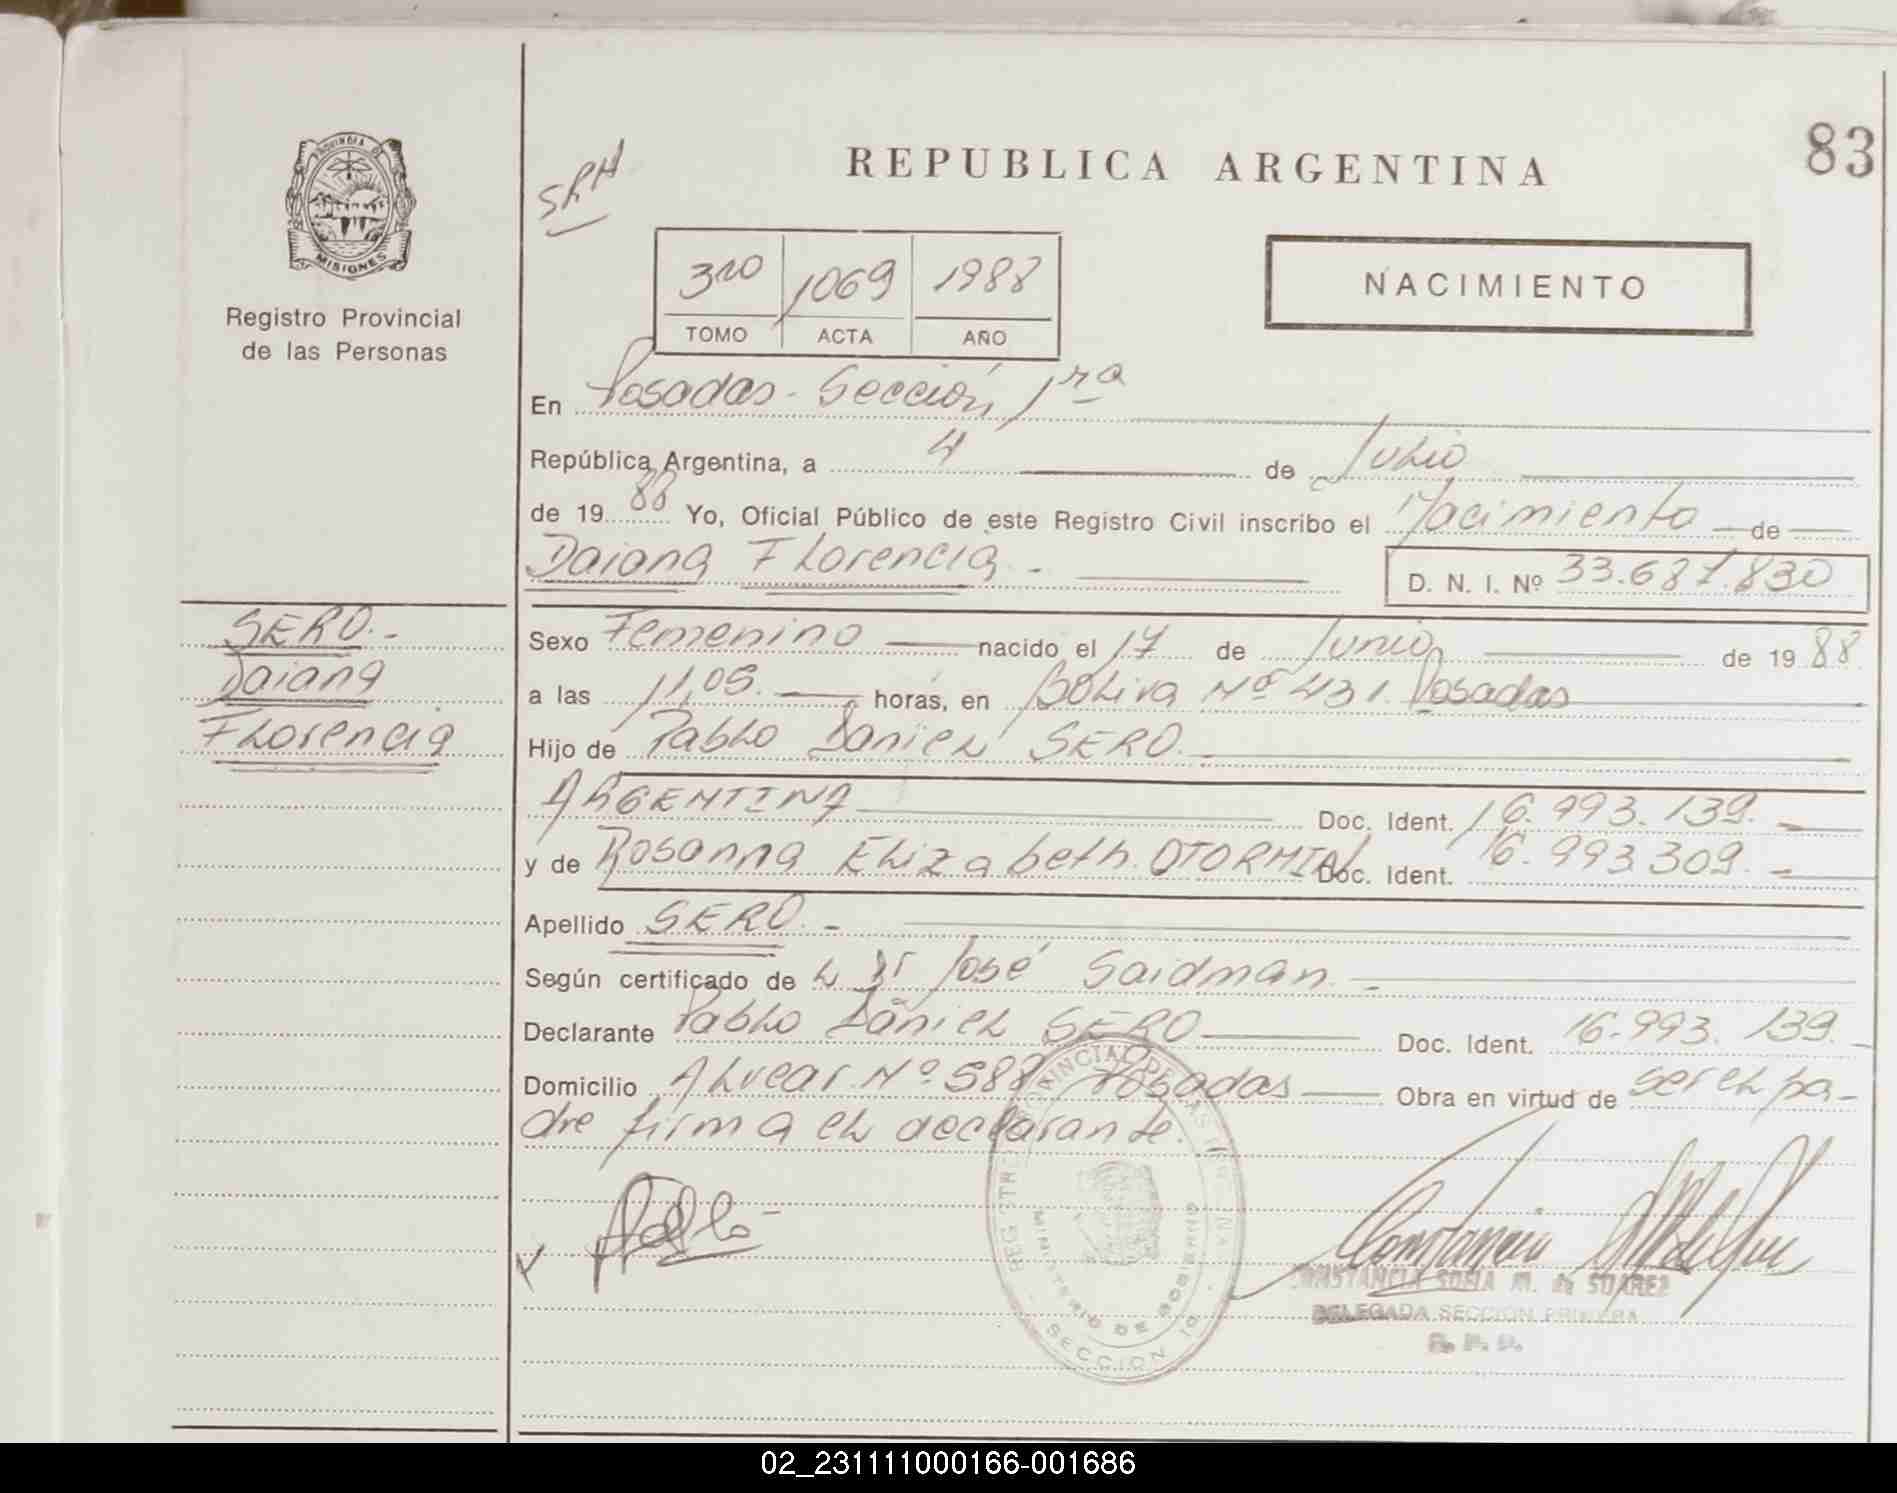 PROVINCIA DE
MISIONES
Registro Provincial
de las Personas
SERO.-
Daiana
Florencia
REPUBLICA ARGENTINA
83
3ro 1069 1988
TOMO ACTA AÑO
NACIMIENTO
En Posadas - Sección 1ra
República Argentina, a 4 de Julio
de 1988 Yo, Oficial Público de este Registro Civil inscribo el Nacimiento de
Daiana Florencia.- D. N. I. Nº 33.687.830
Sexo Femenino nacido el 17 de Junio de 1988
a las 11,05. horas, en Boliva Nº 431. Posadas
Hijo de Pablo Daniel SERO.-
ARGENTINA Doc. Ident. 16.993.139.-
y de Rosanna Elizabeth. OTORMIN Doc. Ident. 16.993.309.-
Apellido SERO.-
Según certificado de L Dr José Saidman.-
Declarante Pablo Daniel SERO Doc. Ident. 16.993.139.-
Domicilio Alvear Nº 588 Posadas Obra en virtud de ser el pa-
dre firma el declarante.
MINISTERIO DE GOBIERNO
SECCION
CONSTANCIA SOFIA M. de SUAREZ
DELEGADA SECCION PRIMERA
R. P. P.
02_231111000166-001686